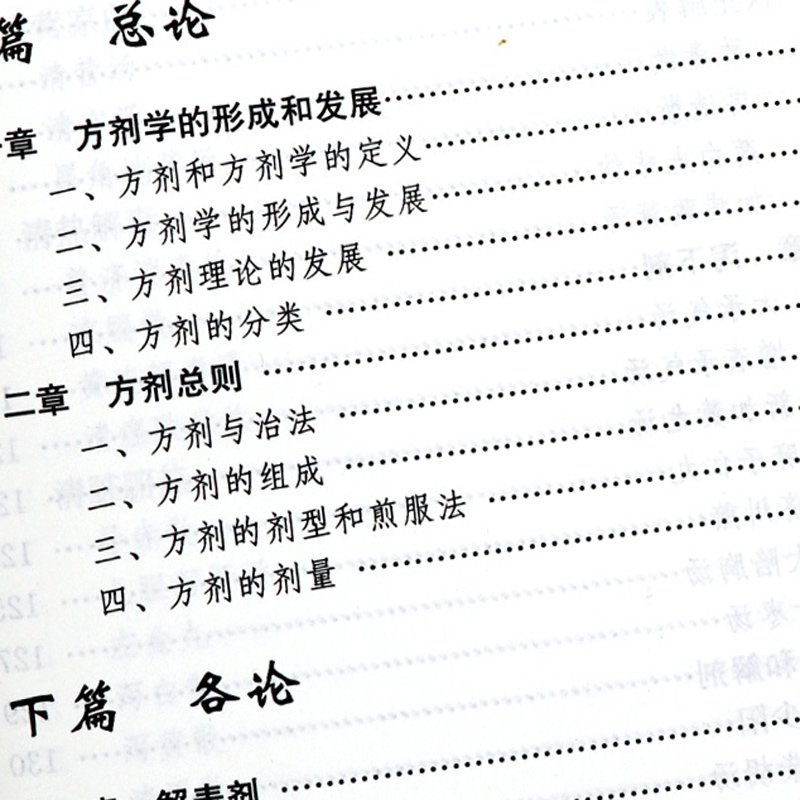 篇 总论
章 方剂学的形成和发展
一、方剂和方剂学的定义
二、方剂学的形成与发展
三、方剂理论的发展
四、方剂的分类
二章 方剂总则
一、方剂与治法
二、方剂的组成
三、方剂的剂型和煎服法
四、方剂的剂量
下篇 各论
解表剂